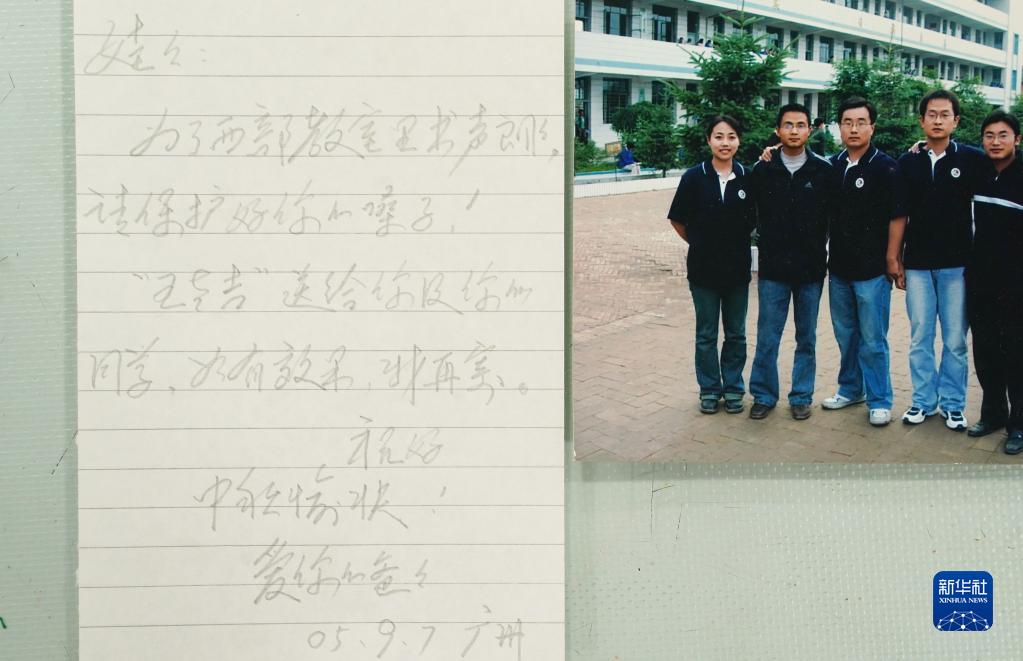 娃々：
为了西部教室里书声朗々，
请保护好你的嗓子！
“王老吉”送给你及你的
同学，如有效果，我再寄。
祝好
中秋愉快！
爱你的爸々
05.9.7 广州
新华社
XINHUA NEWS